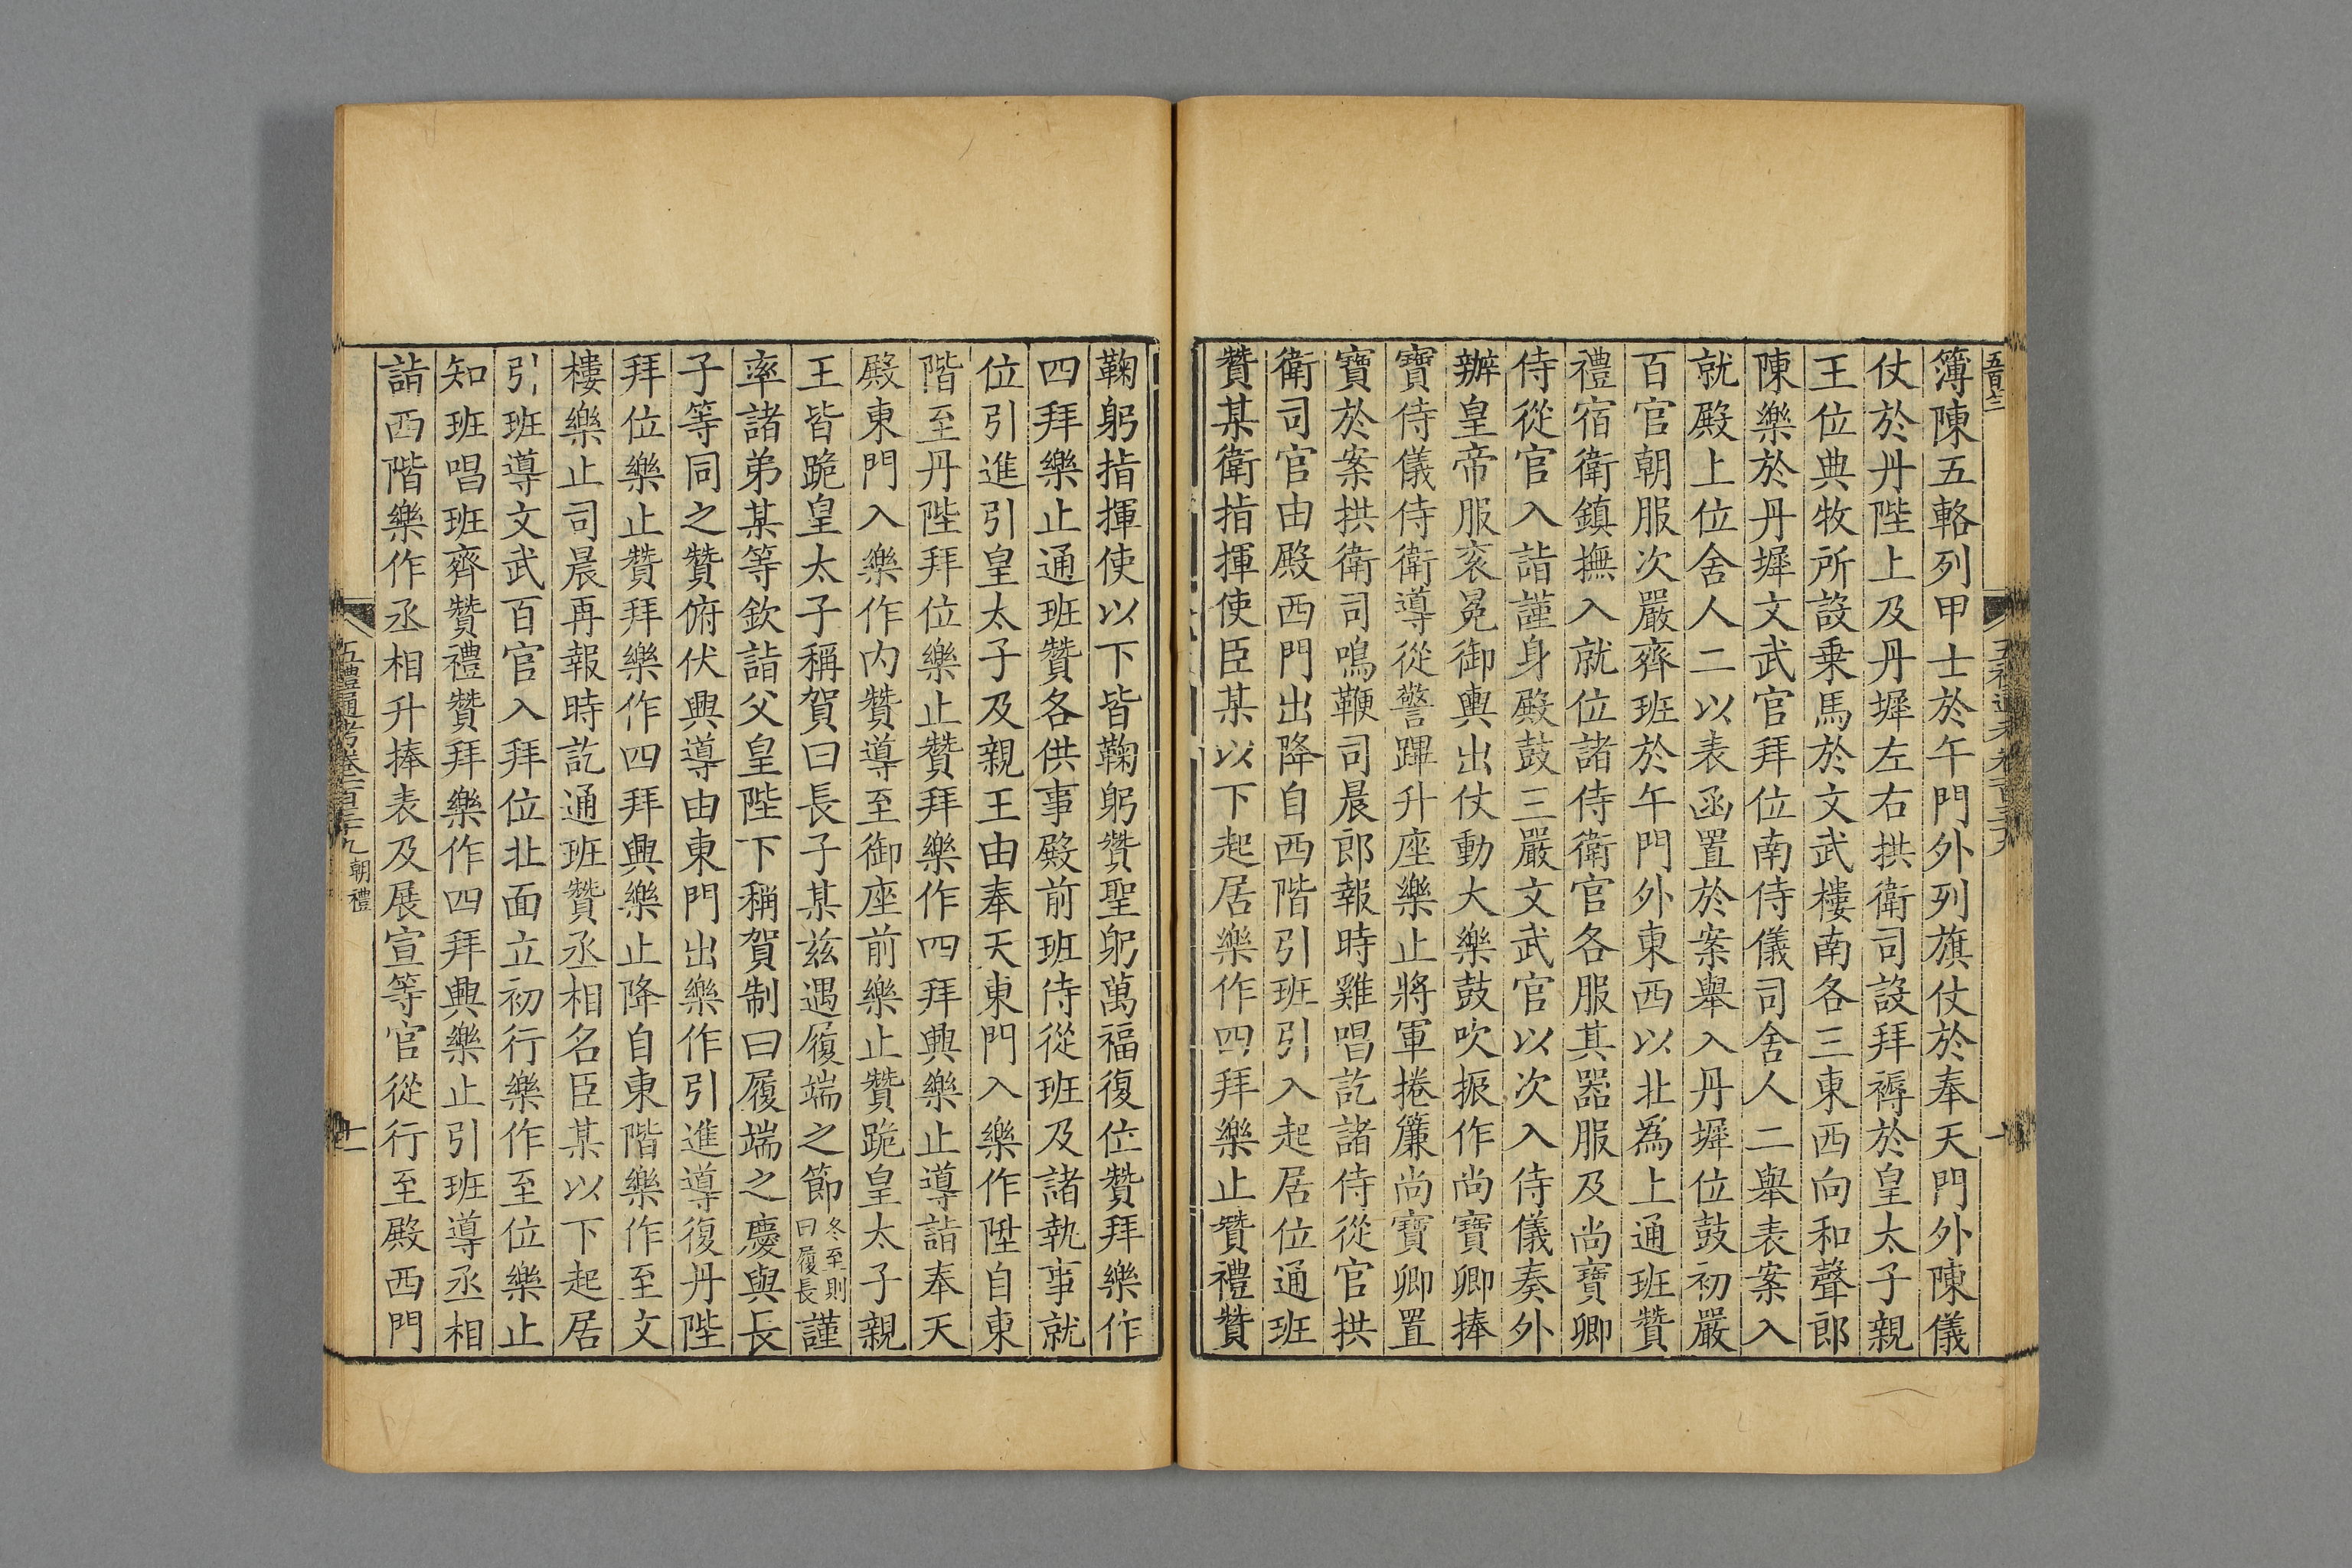 簿陳五輅列甲士於午門外列旗仗於奉天門外陳儀
仗於丹陛上及丹墀左右拱衛司設拜褥於皇太子親
王位典牧所設乗馬於文武樓南各三東西向和聲郎
陳樂於丹墀文武官拜位南侍儀司舍人二舉表案入
就殿上位舍人二以表函置於案舉入丹墀位鼓初嚴
百官朝服次嚴齊班於午門外東西以北爲上通班贊
禮宿衛鎮撫入就位諸侍衛官各服其器服及尚寶卿
侍從官入詣謹身殿鼓三嚴文武官以次入侍儀奏外
辦皇帝服衮冕御輿出仗動大樂鼓吹振作尚寶卿捧
寶侍儀侍衛導從警蹕升座樂止將軍捲簾尚寶卿置
寶於案拱衛司鳴鞭司晨郎報時雞唱訖諸侍從官拱
衛司官由殿西門出降自西階引班引入起居位通班
贊某衛指揮使臣某以下起居樂作四拜樂止贊禮贊
鞠躬指揮使以下皆鞠躬贊聖躬萬福復位贊拜樂作
四拜樂止通班贊各供事殿前班侍從班及諸執事就
位引進引皇太子及親王由奉天東門入樂作陞自東
階至丹陛拜位樂止贊拜樂作四拜興樂止導詣奉天
殿東門入樂作内贊導至御座前樂止贊跪皇太子親
王皆跪皇太子稱賀曰長子某兹遇履端之節冬至則曰履長謹
率諸弟某等欽詣父皇陛下稱賀制曰履端之慶與長
子等同之贊俯伏興導由東門出樂作引進導復丹陛
拜位樂止贊拜樂作四拜興樂止降自東階樂作至文
樓樂止司晨再報時訖通班贊丞相名臣某以下起居
引班導文武百官入拜位北面立初行樂作至位樂止
知班唱班齊贊禮贊拜樂作四拜興樂止引班導丞相
詣西階樂作丞相升捧表及展宣等官從行至殿西門
五禮通考卷一百三十九 朝禮